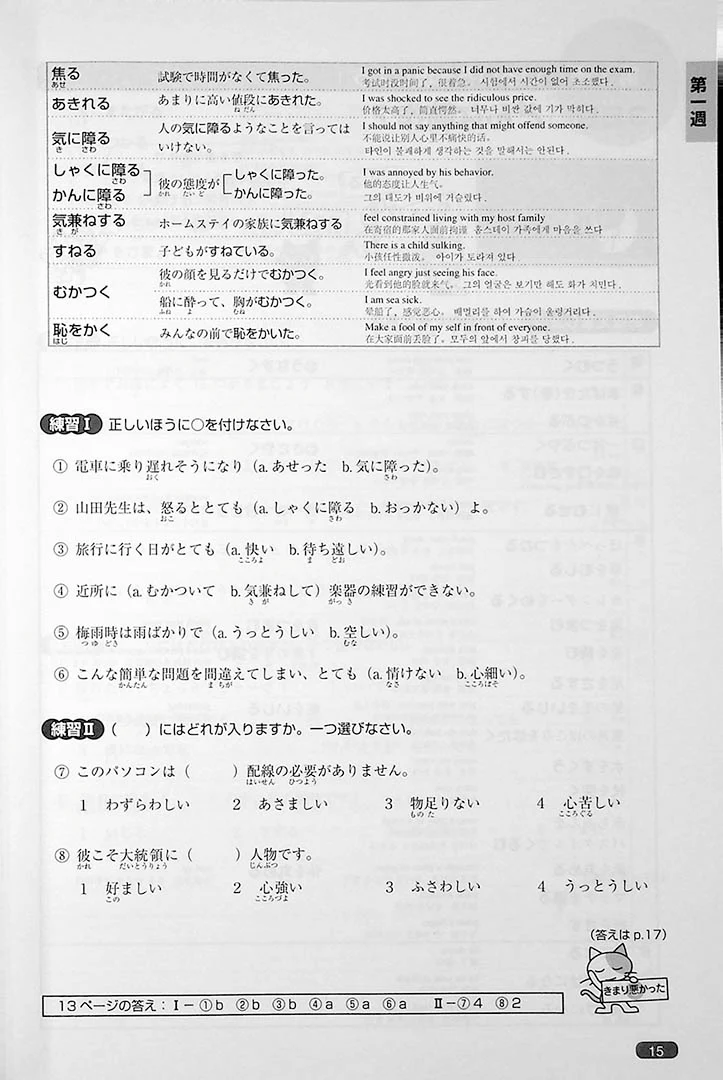 第一週
焦る 試験で時間がなくて焦った。 I got in a panic because I did not have enough time on the exam.
あせ 考试时没时间了，很着急。 시험에서 시간이 없어 초조했다.
あきれる あまりに高い値段にあきれた。 I was shocked to see the ridiculous price.
ねだん 价格太高了，简直愕然。 너무나 비싼 값에 기가 막히다.
気に障る 人の気に障るようなことを言っては I should not say anything that might offend someone.
き さわ いけない。 不能说让别人心里不痛快的话。
타인이 불쾌하게 생각하는 것을 말해서는 안된다.
しゃくに障る 彼の態度が しゃくに障った。 I was annoyed by his behavior.
さわ 他的态度让人生气。
かんに障る かれ たいど かんに障った。 그의 태도가 비위에 거슬렸다.
さわ
気兼ねする ホームステイの家族に気兼ねする feel constrained living with my host family
き が 在寄宿的那家人面前拘谨 홈스테이 가족에게 마음을 쓰다
すねる 子どもがすねている。 There is a child sulking.
小孩任性撒泼。 아이가 토라져 있다.
むかつく 彼の顔を見るだけでむかつく。 I feel angry just seeing his face.
かれ 光看到他的脸就来气。 그의 얼굴은 보기만 해도 화가 치민다.
船に酔って、胸がむかつく。 I am sea sick.
ふね よ むね 晕船了，感觉恶心。 배멀리를 하여 가슴이 울렁거리다.
恥をかく みんなの前で恥をかいた。 Make a fool of my self in front of everyone.
はじ 在大家面前丢脸了。 모두의 앞에서 창피를 당했다.
練習Ⅰ 正しいほうに○を付けなさい。
① 電車に乗り遅れそうになり（a. あせった b. 気に障った）。
おく さわ
② 山田先生は、怒るととても（a. しゃくに障る b. おっかない）よ。
おこ さわ
③ 旅行に行く日がとても（a. 快い b. 待ち遠しい）。
こころよ ま どお
④ 近所に（a. むかついて b. 気兼ねして）楽器の練習ができない。
き が がっき
⑤ 梅雨時は雨ばかりで（a. うっとうしい b. 空しい）。
つゆ どき むな
⑥ こんな簡単な問題を間違えてしまい、とても（a. 情けない b. 心細い）。
かんたん ま ちが なさ こころぼそ
練習Ⅱ （ ）にはどれが入りますか。一つ選びなさい。
⑦ このパソコンは（ ）配線の必要がありません。
はいせん ひつよう
1 わずらわしい 2 あさましい 3 物足りない 4 心苦しい
もの た こころぐる
⑧ 彼こそ大統領に（ ）人物です。
かれ だいとうりょう じんぶつ
1 好ましい 2 心強い 3 ふさわしい 4 うっとうしい
この こころづよ
（答えは p.17）
きまり悪かった
13ページの答え：Ⅰ－①b ②b ③b ④a ⑤a ⑥a Ⅱ－⑦4 ⑧2
15